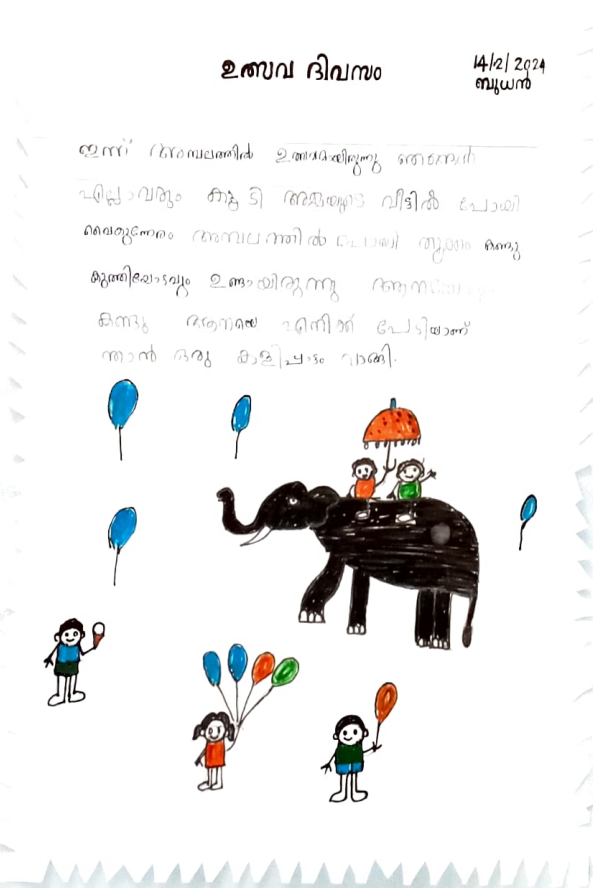 ഉത്സവ ദിവസം
14/2/2024
ബുധൻ
ഇന്ന് അമ്പലത്തിൽ ഉത്സവമായിരുന്നു ഞങ്ങൾ
എല്ലാവരും കൂടി അമ്മയുടെ വീട്ടിൽ പോയി
വൈകുന്നേരം അമ്പലത്തിൽ പോയി തൂക്കം കണ്ടു
കുത്തിയോട്ടവും ഉണ്ടായിരുന്നു
കണ്ടു ആനയെ എനിക്ക് പേടിയാണ്
ഞാൻ ഒരു കളിപ്പാട്ടം വാങ്ങി.